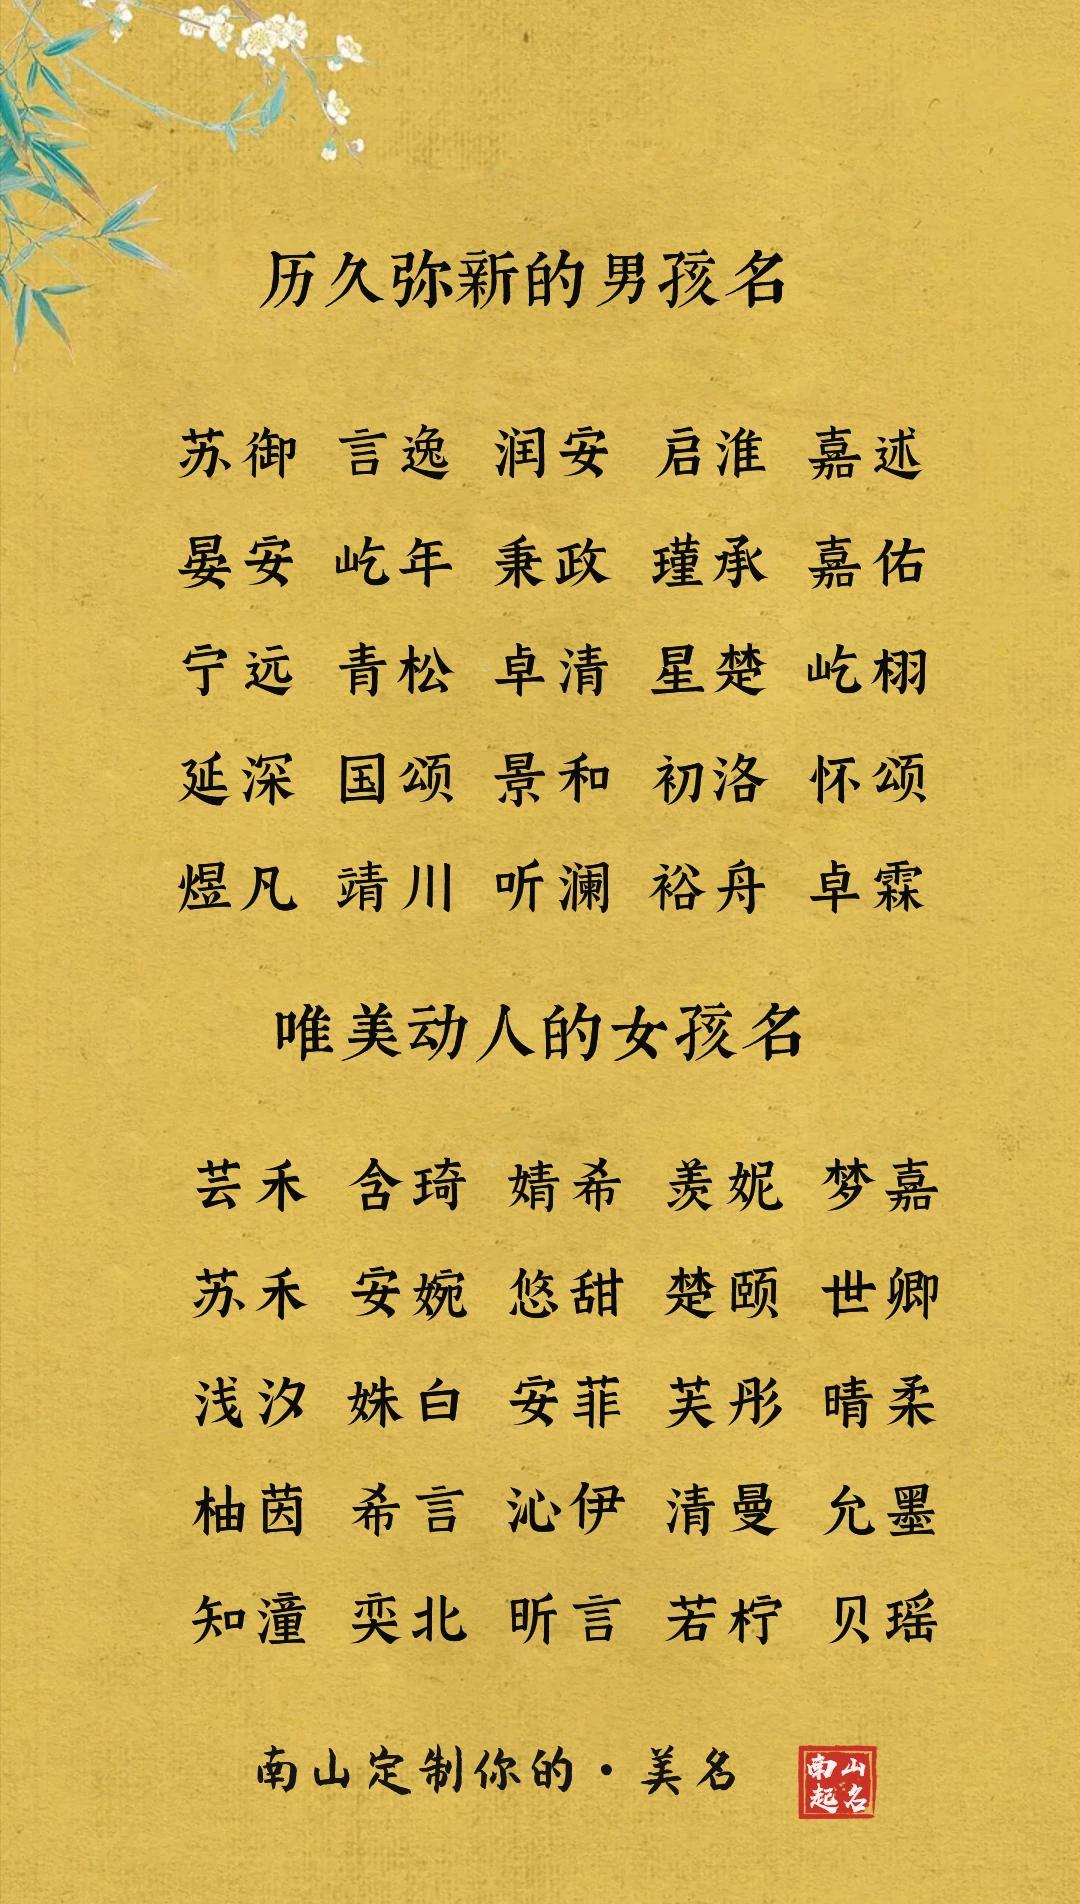 历久弥新的男孩名
苏御 言逸 润安 启淮 嘉述
晏安 屹年 秉政 瑾承 嘉佑
宁远 青松 卓清 星楚 屹栩
延深 国颂 景和 初洛 怀颂
煜凡 靖川 听澜 裕舟 卓霖
唯美动人的女孩名
芸禾 含琦 婧希 羡妮 梦嘉
苏禾 安婉 悠甜 楚颐 世卿
浅汐 姝白 安菲 芙彤 晴柔
柚茵 希言 沁伊 清曼 允墨
知潼 奕北 昕言 若柠 贝瑶
南山定制你的·美名
南山
起名